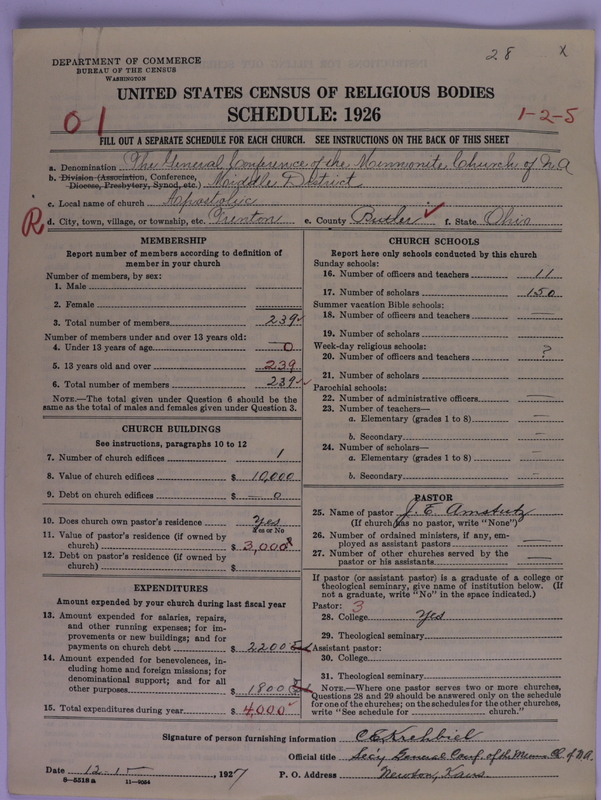 28 x
DEPARTMENT OF COMMERCE
BUREAU OF THE CENSUS
WASHINGTON
UNITED STATES CENSUS OF RELIGIOUS BODIES
SCHEDULE: 1926
01
1-2-5
FILL OUT A SEPARATE SCHEDULE FOR EACH CHURCH. SEE INSTRUCTIONS ON THE BACK OF THIS SHEET
a. Denomination The General Conference of the Mennonite Church of N A
b. Division (Association, Conference, Diocese, Presbytery, Synod, etc.) Middle District
c. Local name of church Apostolic
R d. City, town, village, or township, etc. Trenton e. County Butler ✓ f. State Ohio
MEMBERSHIP
Report number of members according to definition of
member in your church
Number of members, by sex:
1. Male
2. Female
3. Total number of members 239 ✓
Number of members under and over 13 years old:
4. Under 13 years of age 0
5. 13 years old and over 239
6. Total number of members 239 ✓
NOTE.—The total given under Question 6 should be the
same as the total of males and females given under Question 3.
CHURCH BUILDINGS
See instructions, paragraphs 10 to 12
7. Number of church edifices 1
8. Value of church edifices $ 10,000
9. Debt on church edifices $ 0
10. Does church own pastor's residence Yes
Yes or No
11. Value of pastor's residence (if owned by
church) $ 3,000
12. Debt on pastor's residence (if owned by
church) $
EXPENDITURES
Amount expended by your church during last fiscal year
13. Amount expended for salaries, repairs,
and other running expenses; for im-
provements or new buildings; and for
payments on church debt $ 2200
14. Amount expended for benevolences, in-
cluding home and foreign missions; for
denominational support; and for all
other purposes $ 1800
15. Total expenditures during year $ 4,000 ✓
CHURCH SCHOOLS
Report here only schools conducted by this church
Sunday schools:
16. Number of officers and teachers 11
17. Number of scholars 150
Summer vacation Bible schools:
18. Number of officers and teachers —
19. Number of scholars —
Week-day religious schools:
20. Number of officers and teachers ?
21. Number of scholars
Parochial schools:
22. Number of administrative officers —
23. Number of teachers—
a. Elementary (grades 1 to 8) —
b. Secondary —
24. Number of scholars—
a. Elementary (grades 1 to 8) —
b. Secondary —
PASTOR
25. Name of pastor J. E. Amstutz
(If church has no pastor, write "None")
26. Number of ordained ministers, if any, em-
ployed as assistant pastors —
27. Number of other churches served by the
pastor or his assistants —
If pastor (or assistant pastor) is a graduate of a college or
theological seminary, give name of institution below. (If
not a graduate, write "No" in the space indicated.)
Pastor: 3
28. College Yes
29. Theological seminary
Assistant pastor:
30. College
31. Theological seminary
NOTE.—Where one pastor serves two or more churches,
Questions 28 and 29 should be answered only on the schedule
for one of the churches; on the schedules for the other churches,
write "See schedule for church."
Signature of person furnishing information C E Krehbiel
Official title Sec'y General Conf. of the Menn. Ch. of N.A.
Date 12-15, 1927 P. O. Address Newton, Kans
8-5518a 11-9054